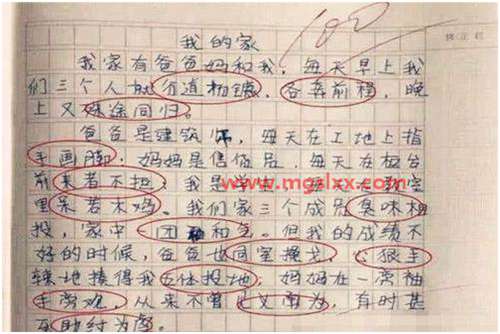 我的家
我家有爸爸妈和我，每天早上我
们三个人就分道扬镳，各奔前程，晚
上又殊途同归。
爸爸是建筑师，每天在工地上指
手画脚；妈妈是售货员，每天在柜台
前来者不拒；我是学
里呆若木鸡。我们家三个成员臭味相
投，家中一团和气。但我的成绩不
好的时候，爸爸也同室操戈，心狠手
辣地揍得我五体投地，妈妈在一旁袖
手旁观，从来不曾见义勇为，有时甚
至助纣为虐。
www.mgslxx.com